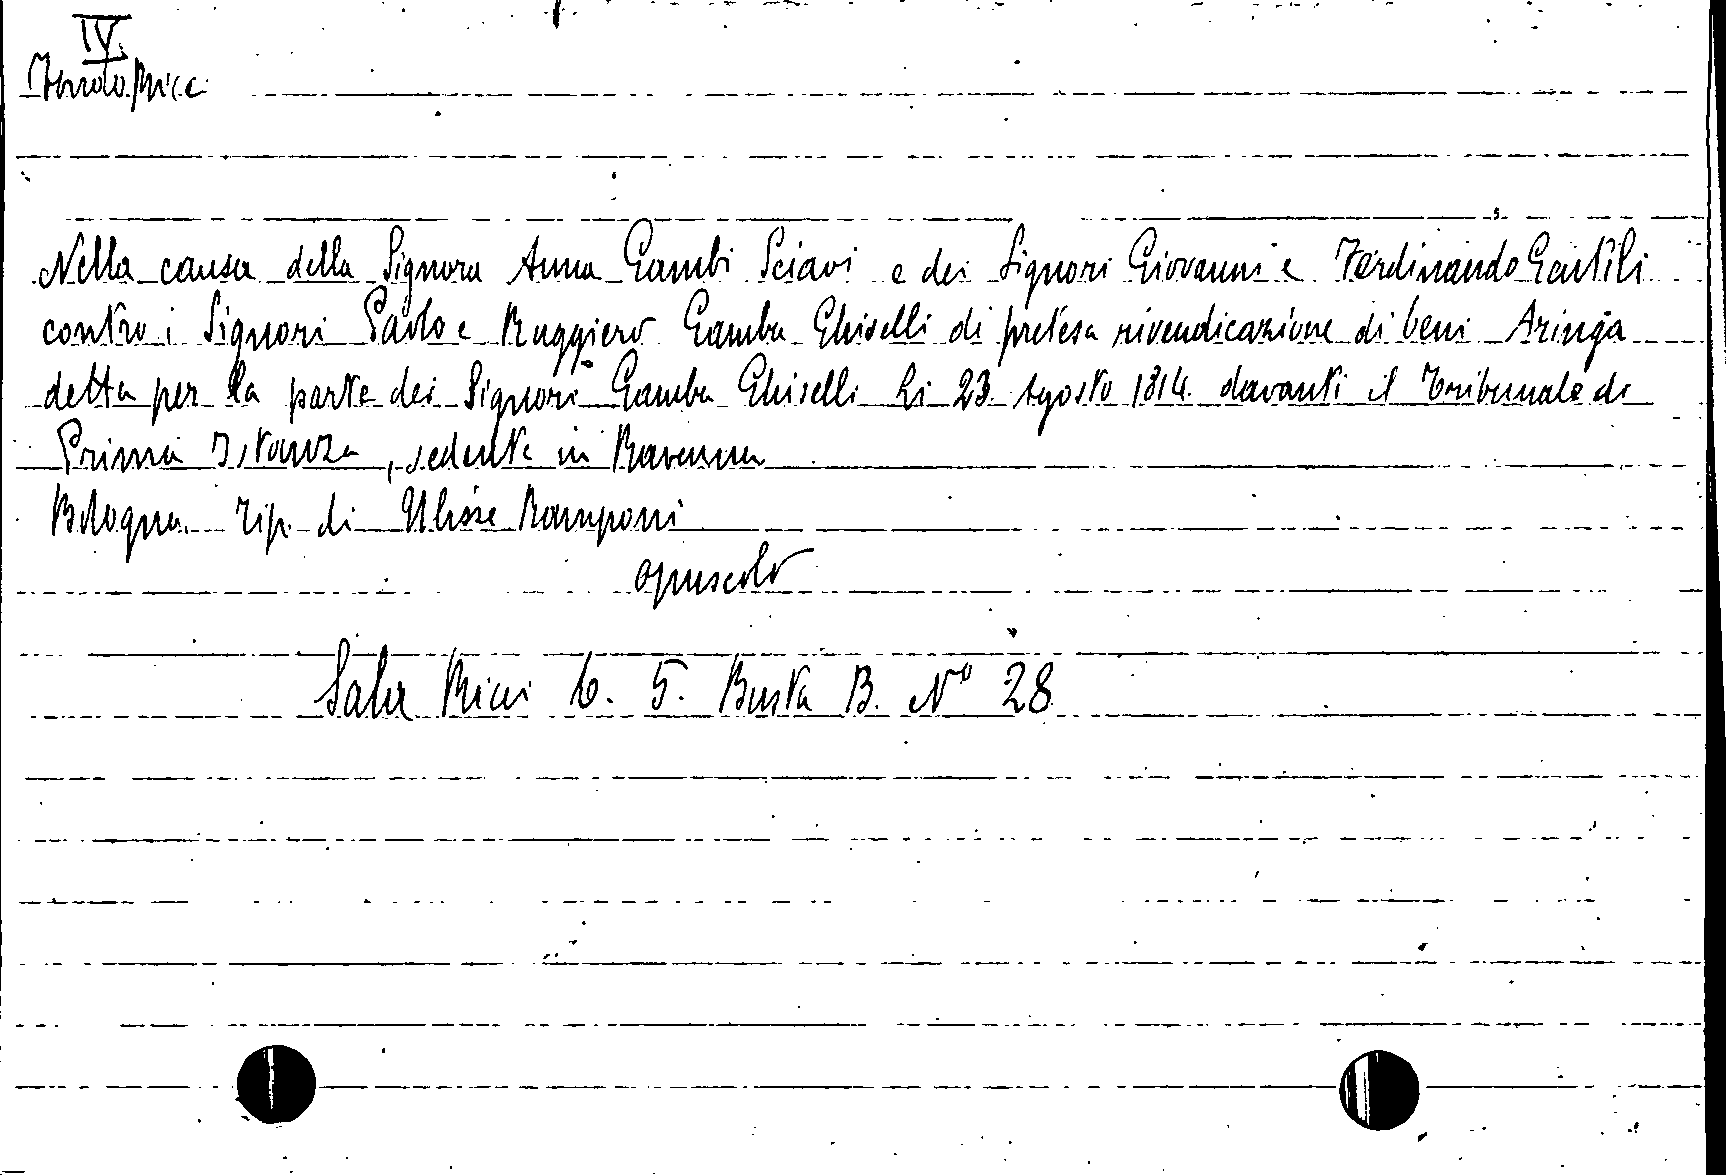 IV.
Fondo Ricci
Nella causa della Signora Anna Gambi Sciavi e dei Signori Giovanni e Ferdinando Gentili
contro i Signori Paolo e Ruggiero Gamba Ghiselli di pretesa rivendicazione di beni Aringa
detta per la parte dei Signori Gamba Ghiselli li 23 Agosto 1814 davanti il Tribunale di
Prima Istanza, sedente in Ravenna
Bologna. Tip. di Ulisse Ramponi
opuscolo
Sala Ricci 6. 5. Busta B. N° 28